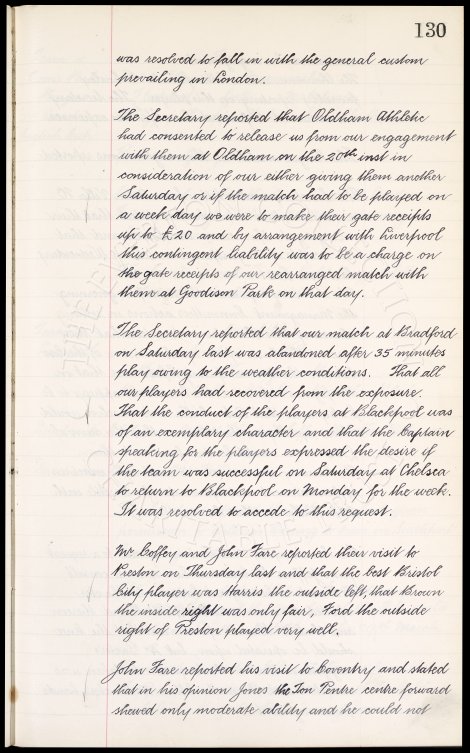 130
was resolved to fall in with the general custom
prevailing in London.
The Secretary reported that Oldham Athletic
had consented to release us from our engagement
with them at Oldham on the 20th inst in
consideration of our either giving them another
Saturday or if the match had to be played on
a week day we were to make their gate receipts
up to £20 and by arrangement with Liverpool
this contingent liability was to be a charge on
the gate receipts of our rearranged match with
them at Goodison Park on that day.
The Secretary reported that our match at Bradford
on Saturday last was abandoned after 35 minutes
play owing to the weather conditions. That all
our players had recovered from the exposure.
That the conduct of the players at Blackpool was
of an exemplary character and that the Captain
speaking for the players expressed the desire if
the team was successful on Saturday at Chelsea
to return to Blackpool on Monday for the week.
It was resolved to accede to this request.
Mr Coffey and John Fare reported their visit to
Preston on Thursday last and that the best Bristol
City player was Harris the outside left, that Brown
the inside right was only fair, Ford the outside
right of Preston played very well.
John Fare reported his visit to Coventry and stated
that in his opinion Jones the Ton Pentre centre forward
shewed only moderate ability and he could not